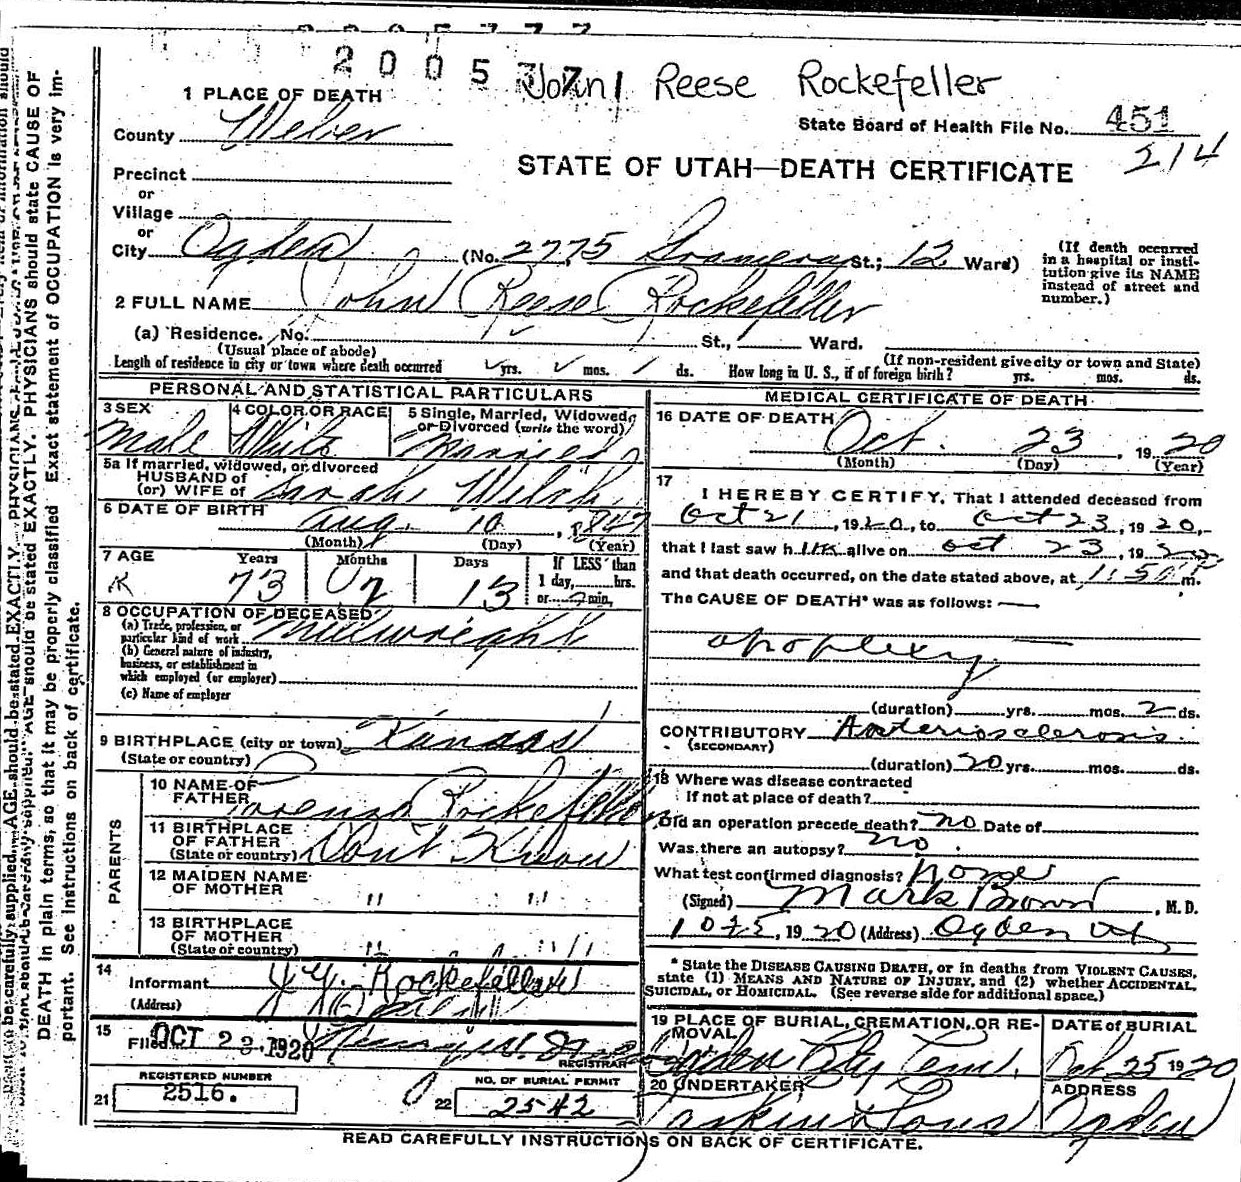 2005777
John Reese Rockefeller
1 PLACE OF DEATH
County Weber
State Board of Health File No. 451
214
STATE OF UTAH—DEATH CERTIFICATE
Precinct
or
Village
or
City Ogden (No. 2775 St.; 12 Ward)
(If death occurred in a hospital or institution give its NAME instead of street and number.)
2 FULL NAME John Reese Rockefeller
(a) Residence. No. St., Ward.
(Usual place of abode) (If non-resident give city or town and State)
Length of residence in city or town where death occurred yrs. mos. ds. How long in U. S., if of foreign birth? yrs. mos. ds.
PERSONAL AND STATISTICAL PARTICULARS
3 SEX 4 COLOR OR RACE 5 Single, Married, Widowed, or Divorced (write the word)
Male White Married
5a If married, widowed, or divorced
HUSBAND of
(or) WIFE of Sarah Welch
6 DATE OF BIRTH Aug. 10, 1847
(Month) (Day) (Year)
7 AGE Years Months Days If LESS than
73 2 13 1 day, hrs.
or min.
8 OCCUPATION OF DECEASED
(a) Trade, profession, or particular kind of work Millwright
(b) General nature of industry, business, or establishment in which employed (or employer)
(c) Name of employer
9 BIRTHPLACE (city or town) Kansas
(State or country)
PARENTS
10 NAME OF FATHER Lorenzo Rockefeller
11 BIRTHPLACE OF FATHER (State or country) Don't Know
12 MAIDEN NAME OF MOTHER " "
13 BIRTHPLACE OF MOTHER (State or country) " "
14
Informant Rockefeller
(Address)
15
Filed OCT 23 1920
REGISTRAR
REGISTERED NUMBER
21 2516.
NO. OF BURIAL PERMIT
22 2542
MEDICAL CERTIFICATE OF DEATH
16 DATE OF DEATH Oct. 23, 1920
(Month) (Day) (Year)
17
I HEREBY CERTIFY, That I attended deceased from
Oct 21, 1920, to Oct 23, 1920,
that I last saw him alive on Oct 23, 1920
and that death occurred, on the date stated above, at 1:50 P m.
The CAUSE OF DEATH* was as follows:
apoplexy
(duration) yrs. mos. 2 ds.
CONTRIBUTORY Arteriosclerosis
(SECONDARY)
(duration) 20 yrs. mos. ds.
18 Where was disease contracted
If not at place of death?
Did an operation precede death? no Date of
Was there an autopsy? no.
What test confirmed diagnosis? None
(Signed) Mark Brown, M. D.
1025, 1920 (Address) Ogden Ut
* State the DISEASE CAUSING DEATH, or in deaths from VIOLENT CAUSES, state (1) MEANS AND NATURE OF INJURY, and (2) whether ACCIDENTAL, SUICIDAL, or HOMICIDAL. (See reverse side for additional space.)
19 PLACE OF BURIAL, CREMATION, OR REMOVAL. DATE of BURIAL
Ogden City Cem. Oct 25 1920
20 UNDERTAKER ADDRESS
Larkin & Sons Ogden
READ CAREFULLY INSTRUCTIONS ON BACK OF CERTIFICATE.
be carefully supplied. AGE should be stated EXACTLY. PHYSICIANS should state CAUSE OF
DEATH in plain terms, so that it may be properly classified. Exact statement of OCCUPATION is very important. See instructions on back of certificate.